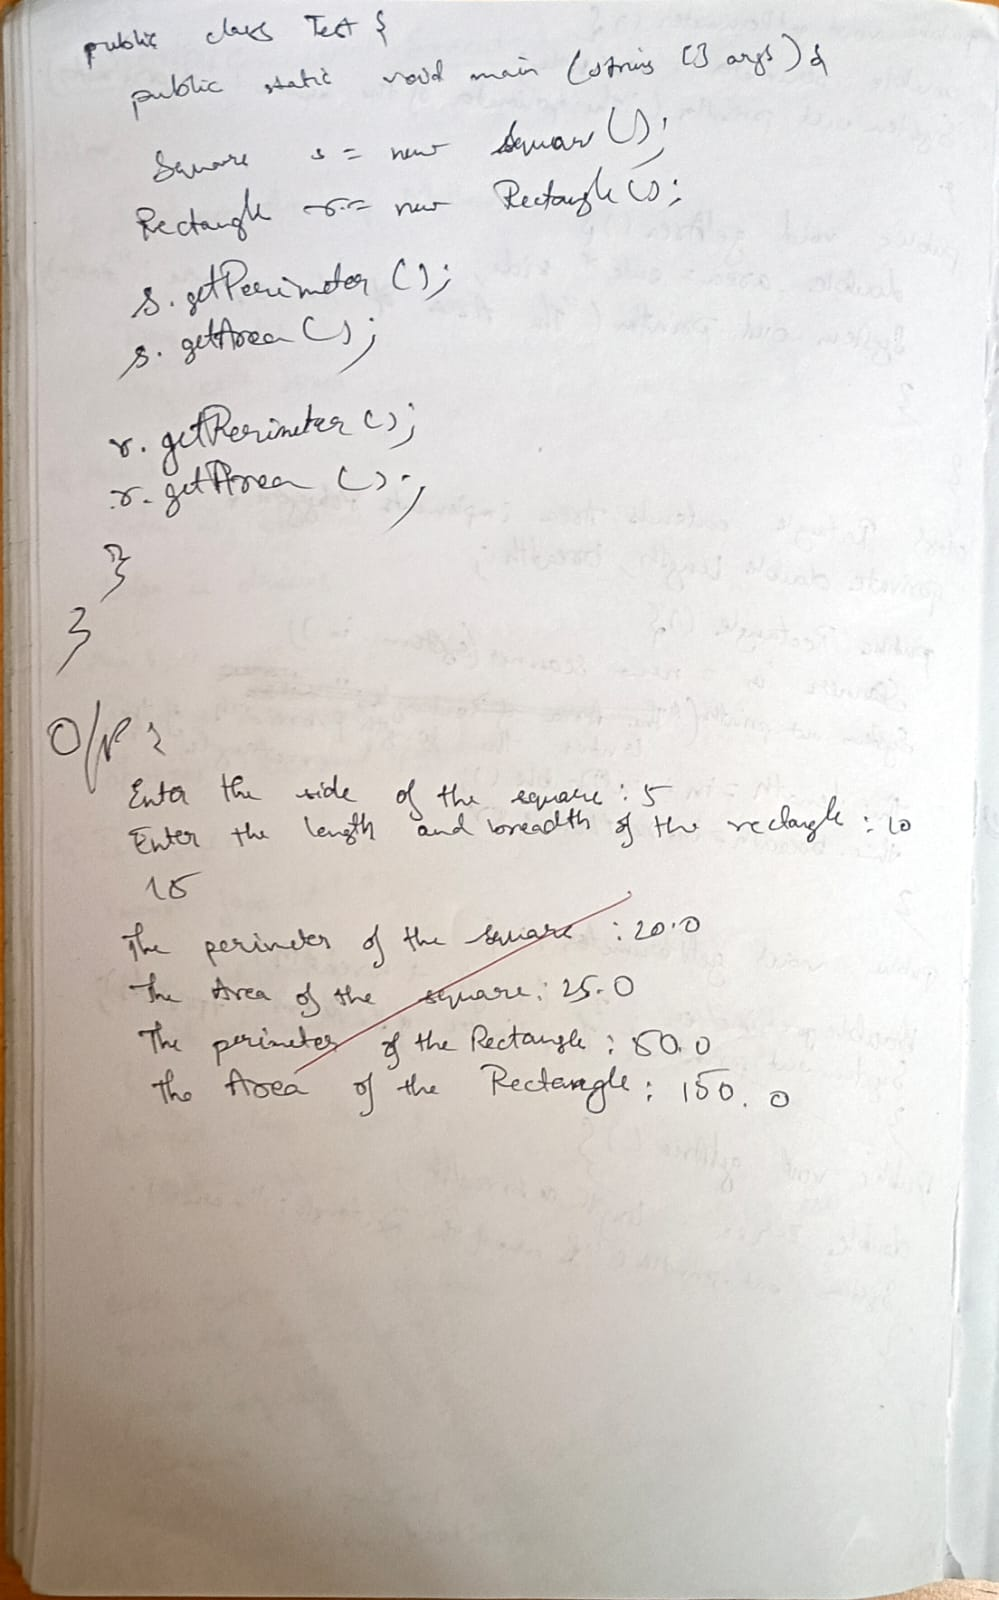 public class Test {
public static void main (string [] args) {
Square s = new Square ();
Rectangle r = new Rectangle ();
s. getPerimeter ();
s. getArea ();
r. getPerimeter ();
r. getArea ();
}
}
O/P :
Enter the side of the square : 5
Enter the length and breadth of the rectangle : 10
15
The perimeter of the square : 20.0
The Area of the square : 25.0
The perimeter of the Rectangle : 50.0
The Area of the Rectangle : 150.0